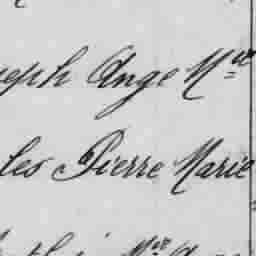 seph Ange Mie
les Pierre Marie